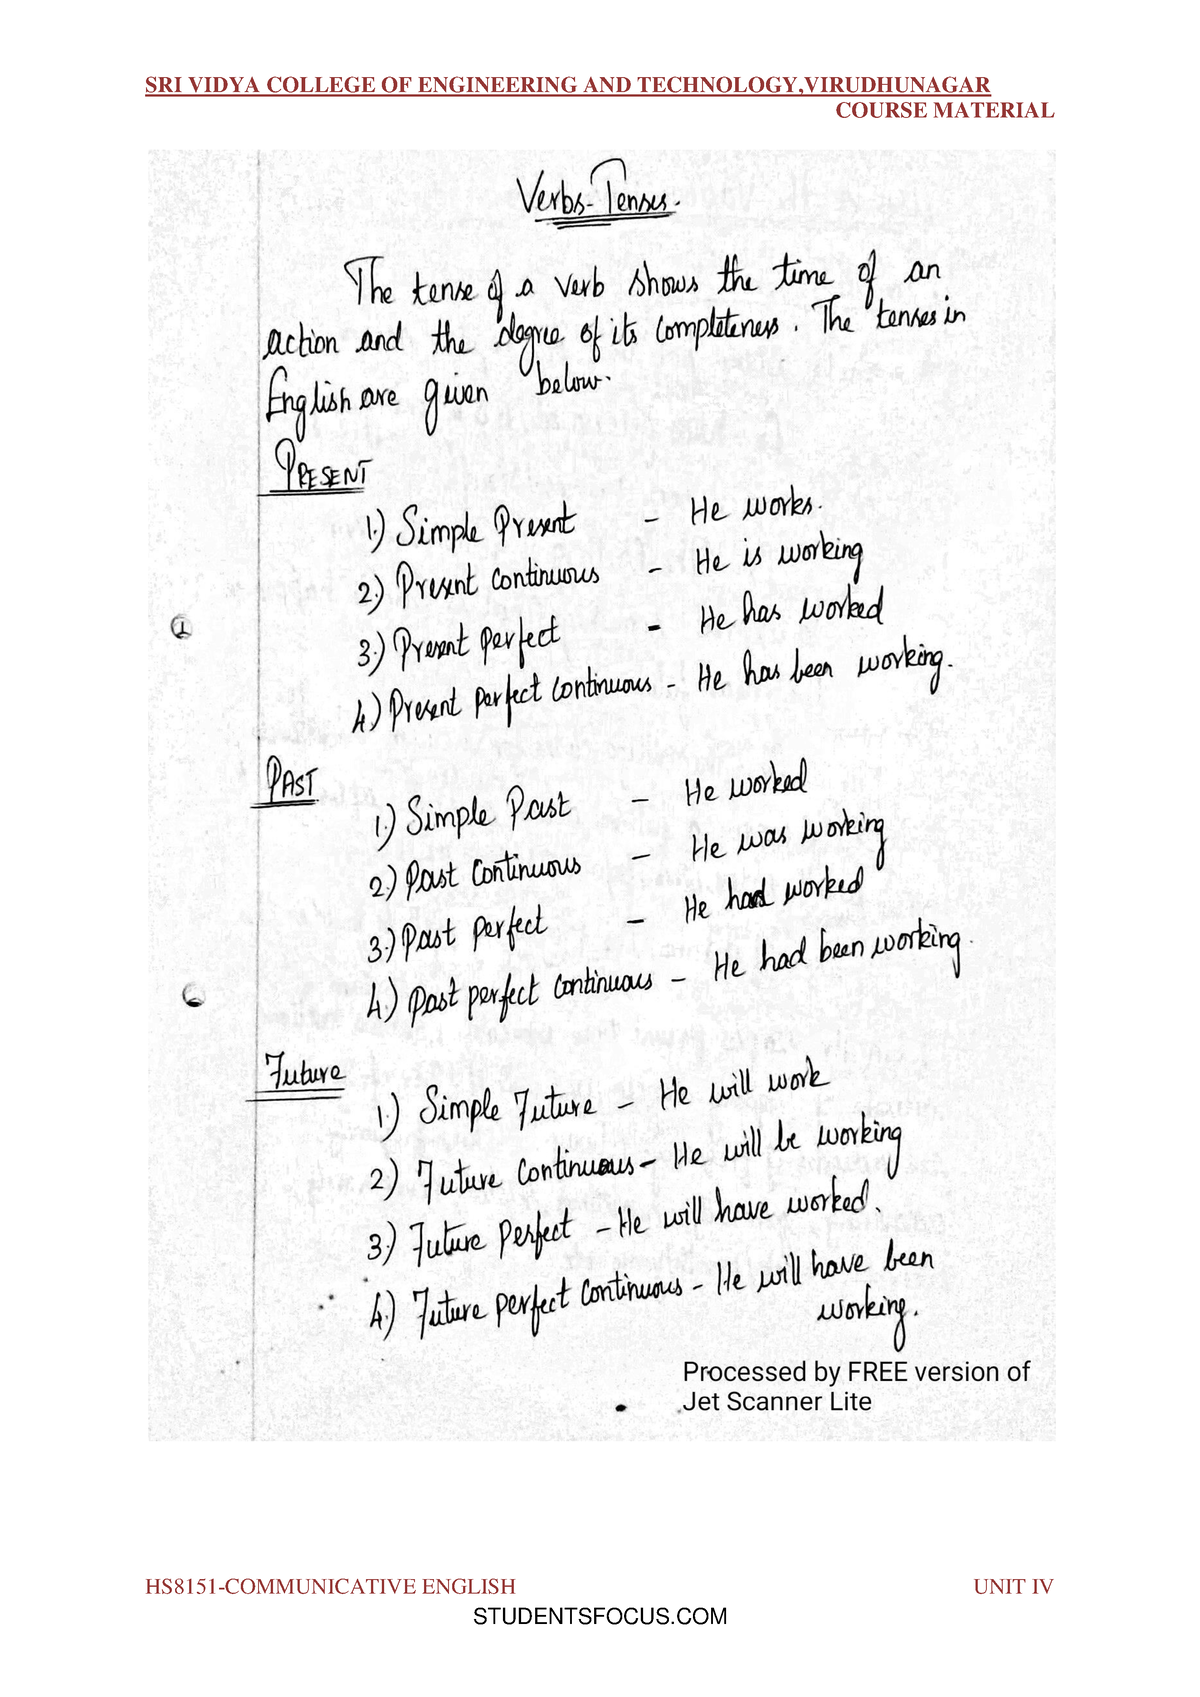 SRI VIDYA COLLEGE OF ENGINEERING AND TECHNOLOGY,VIRUDHUNAGAR
COURSE MATERIAL
Verbs-Tenses.
The tense of a verb shows the time of an
action and the degree of its completeness. The tenses in
English are given below.
PRESENT
1.) Simple Present - He works.
2.) Present continuous - He is working
3.) Present perfect - He has worked
4.) Present perfect continuous - He has been working.
PAST
1.) Simple Past - He worked
2.) Past Continuous - He was working
3.) Past perfect - He had worked
4.) Past perfect continuous - He had been working.
Future
1.) Simple Future - He will work
2.) Future Continuous - He will be working
3.) Future Perfect - He will have worked.
4.) Future perfect continuous - He will have been
working.
Processed by FREE version of
Jet Scanner Lite
HS8151-COMMUNICATIVE ENGLISH UNIT IV
STUDENTSFOCUS.COM